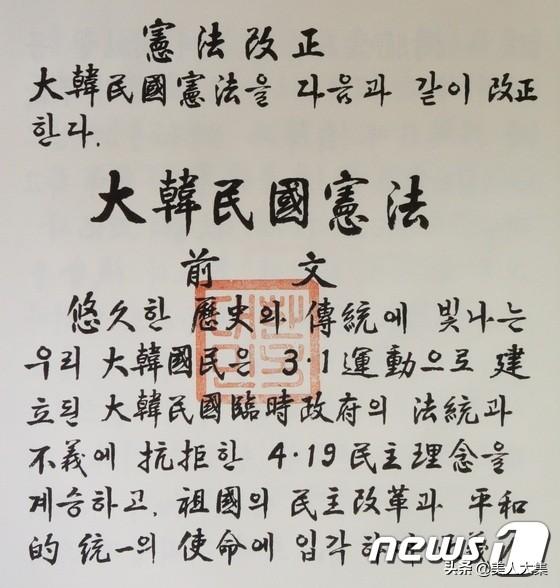 憲法改正
大韓民國憲法을 다음과 같이 改正
한다.
大韓民國憲法
前 文
悠久한 歷史와 傳統에 빛나는
우리 大韓國民은 3·1運動으로 建
立된 大韓民國臨時政府의 法統과
不義에 抗拒한 4·19民主理念을
계승하고, 祖國의 民主改革과 平和
的 統一의 使命에 입각하
news1
头条 @美人大集